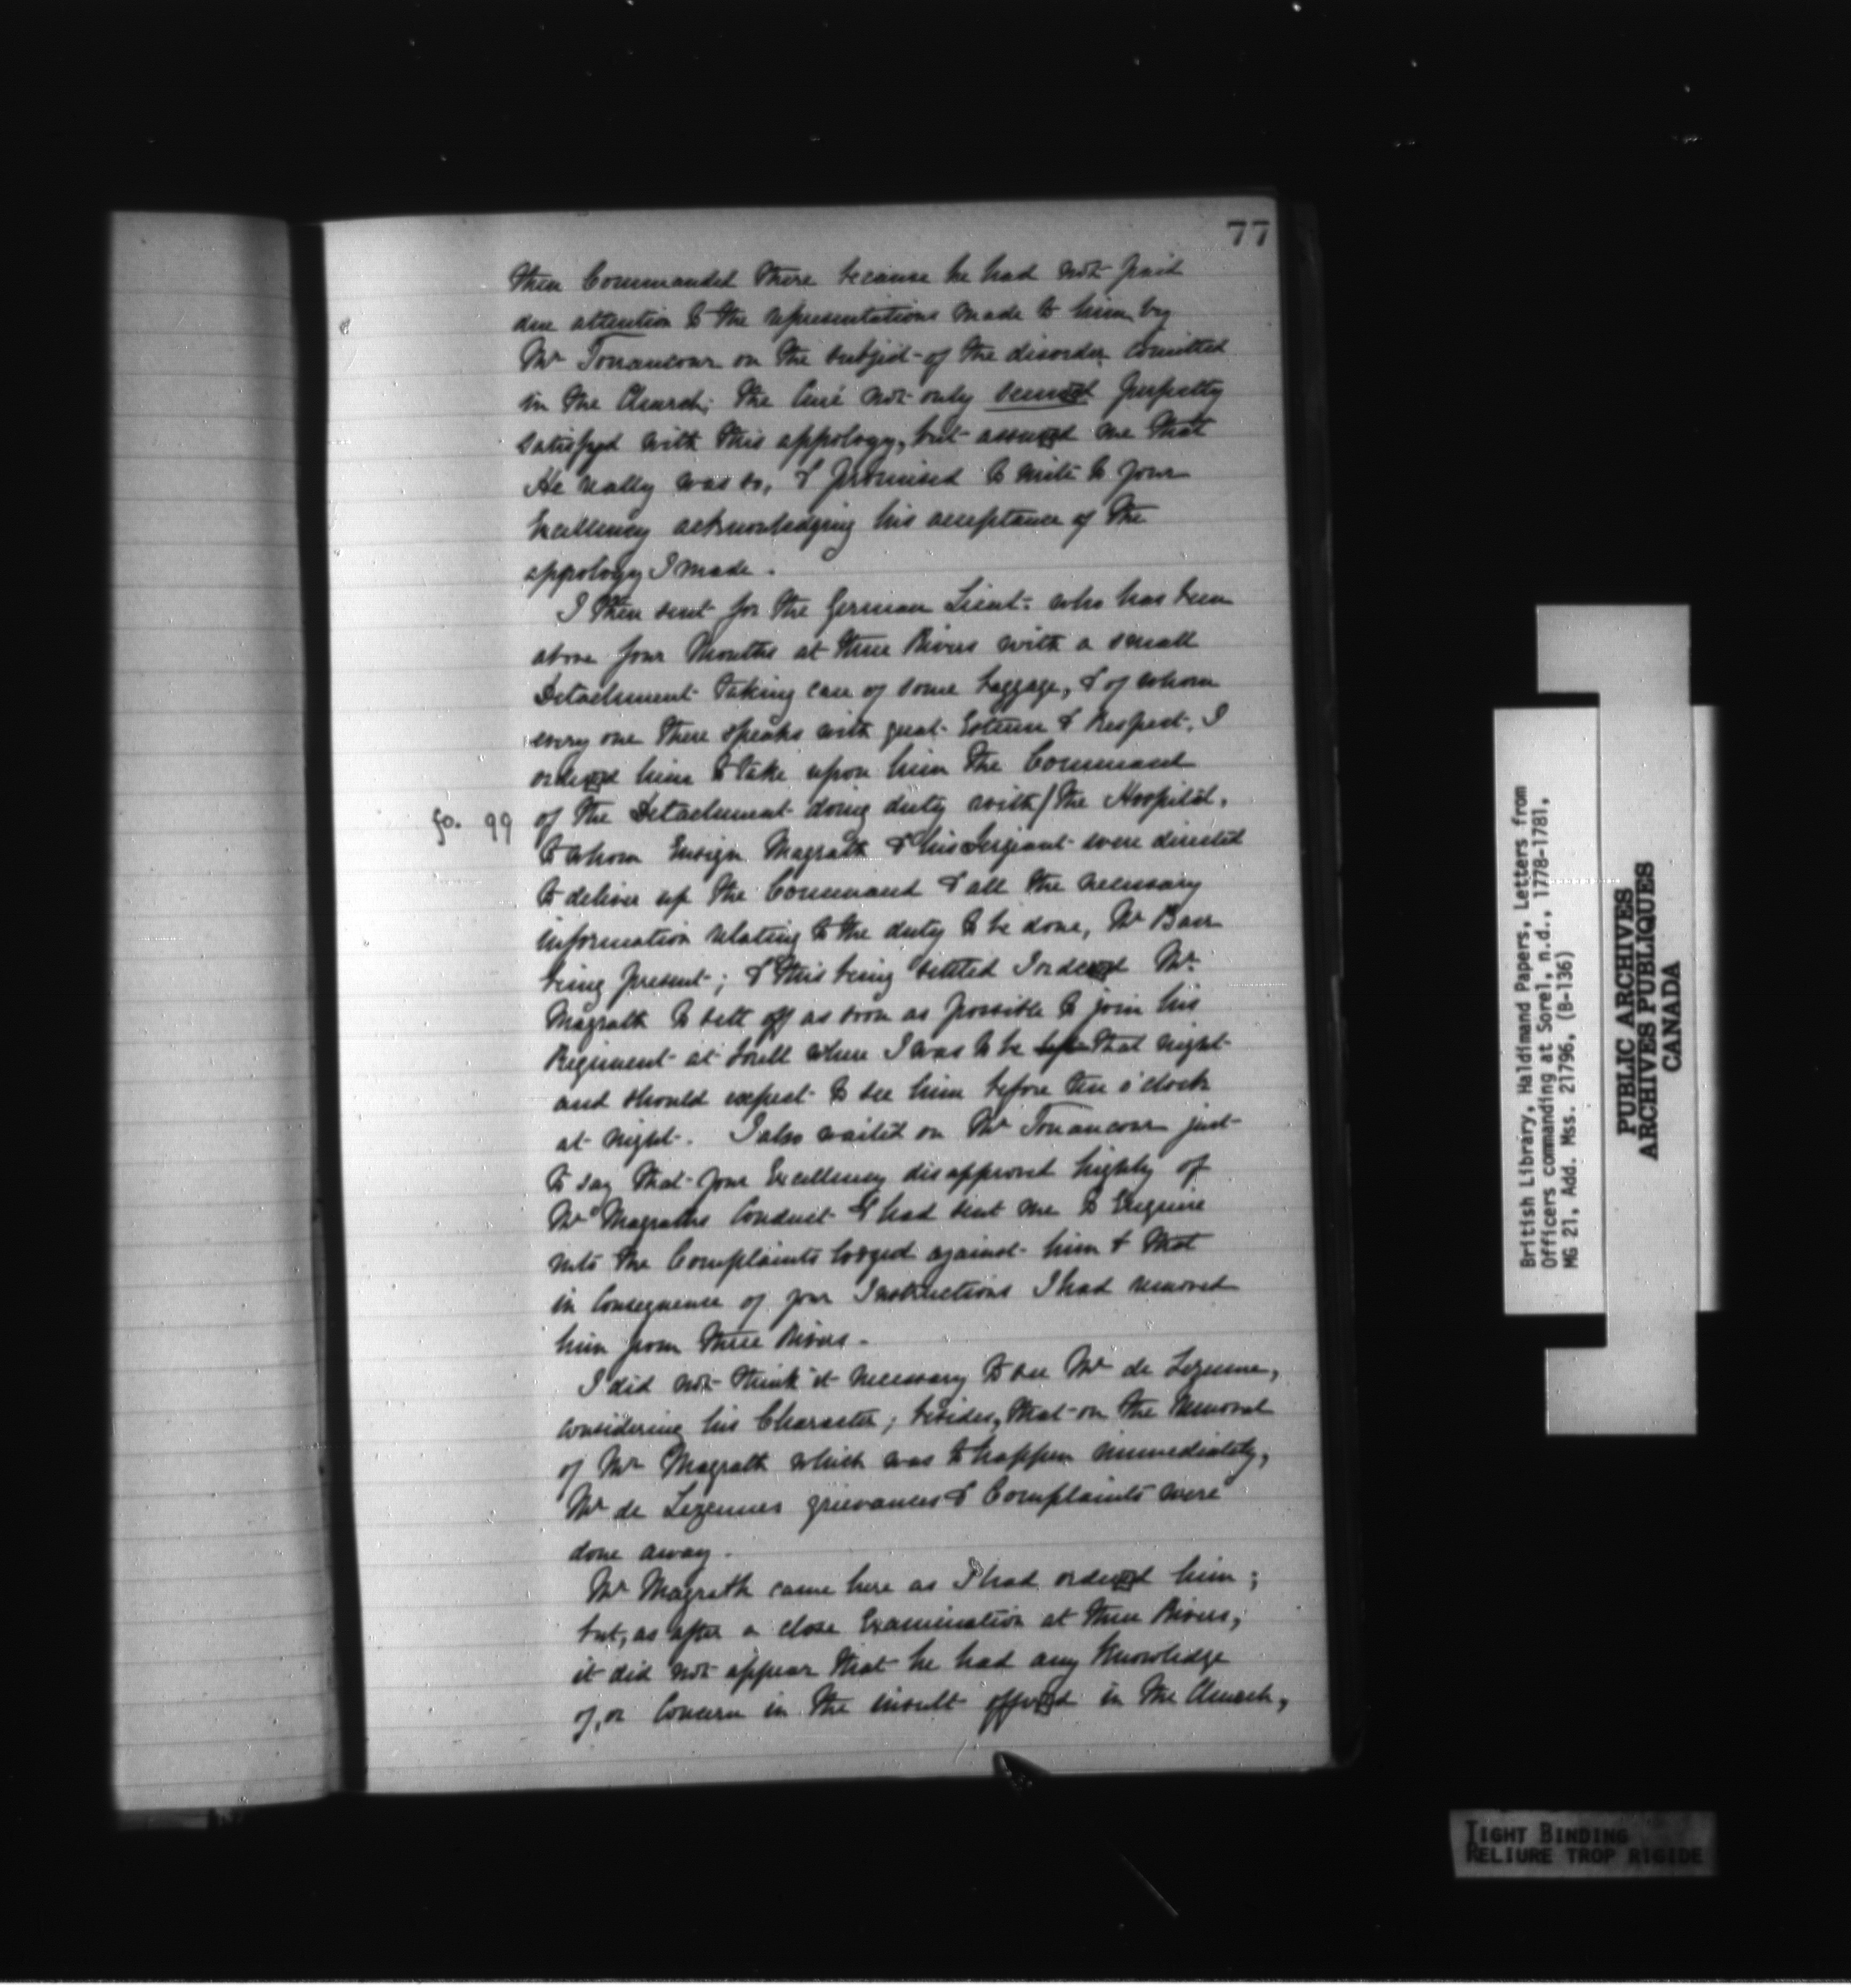 77
then Commanded there because he had not paid
due attention to the representations made to him by
Mr Tonancour on the subject of the disorder comitted
in the Church; the Curé not only seemed perfectly
satisfyed with this appology, but assured me that
He really was so, & promised to write to your
Excellency acknowledging his acceptance of the
appology I made.
I then sent for the German Lieut: who has been
above four Months at three Rivers with a small
Detachment taking care of some baggage, & of whom
every one there speaks with great Esteem & Respect, I
ordered him to take upon him the Command
fo. 99 of the Detachment doing duty with/the Hospital,
to whom Ensign Magrath & his Serjeant were directed
to deliver up the Command & all the necessary
information relating to the duty to be done, Mr Barr
being present; & this being settled I ordered Mr
Magrath to sett off as soon as possible to join his
Regiment at Sorell where I was to be that night
and should expect to see him before ten o'clock
at night. I also waited on Mr Tonancour just
to say that your Excellency disapproved highly of
Mr Magraths Conduct & had sent me to Enquire
into the Complaints lodged against him & that
in Consequence of your Instructions I had removed
him from three Rivers.
I did not think it necessary to see Mr de Lezenne,
considering his Character; besides, that on the removal
of Mr Magrath which was to happen immediately,
Mr de Lezennes grievances & Complaints were
done away.
Mr Magrath came here as I had ordered him;
but, as after a close Examination at three Rivers,
it did not appear that he had any Knowledge
of, or Concern in the insult offered in the Church,
British Library, Haldimand Papers, Letters from
Officers commanding at Sorel, n.d., 1778-1781,
MG 21, Add. Mss. 21796, (B-136)
PUBLIC ARCHIVES
ARCHIVES PUBLIQUES
CANADA
TIGHT BINDING
RELIURE TROP RIGIDE